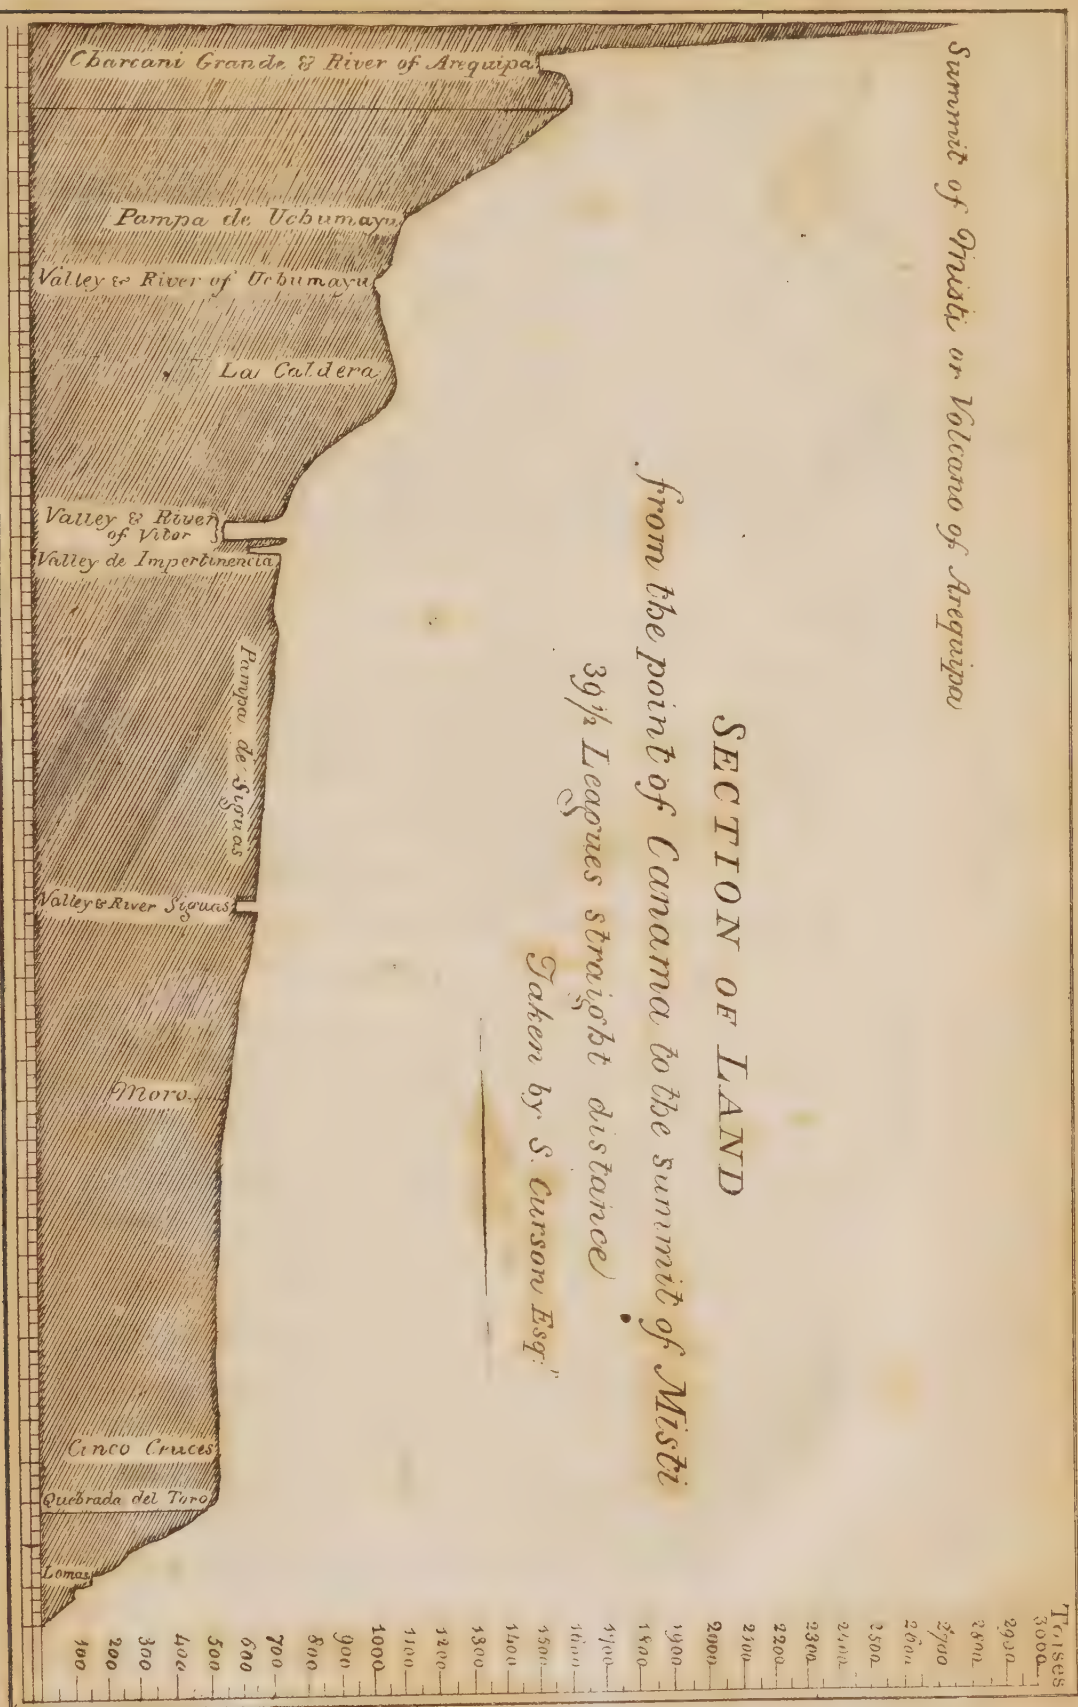 SECTION OF LAND
from the point of Canama to the summit of Misti
39½ Leagues straight distance
Taken by S. Curson Esqr.
Summit of Misti or Volcano of Arequipa
Charcani Grande & River of Arequipa
Pampa de Uchumayu
Valley & River of Uchumayu
La Caldera
Valley & River
of Vitor
Valley de Impertinencia
Pampa de Siguas
Valley & River Siguas
Moro
Cinco Cruces
Quebrada del Toro
Lomas
Toises
3000
2900
2800
2700
2600
2500
2400
2300
2200
2100
2000
1900
1800
1700
1600
1500
1400
1300
1200
1100
1000
900
800
700
600
500
400
300
200
100